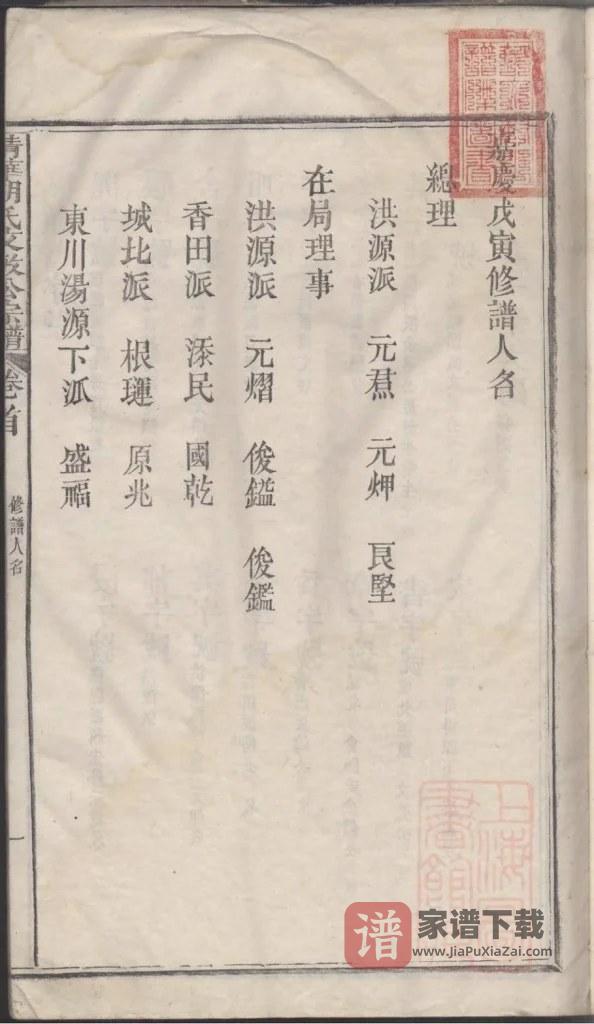 嘉慶戊寅修譜人名
總理
洪源派 元焄 元炠 艮堅
在局理事
洪源派 元熠 俊鎰 俊鑑
香田派 添民 國乾
城北派 根璉 原兆
東川湯源下派 盛福
清華胡氏文敏公宗譜 卷首 修譜人名 一
上海圖書館
谱 家谱下载
www.JiaPuXiaZai.com